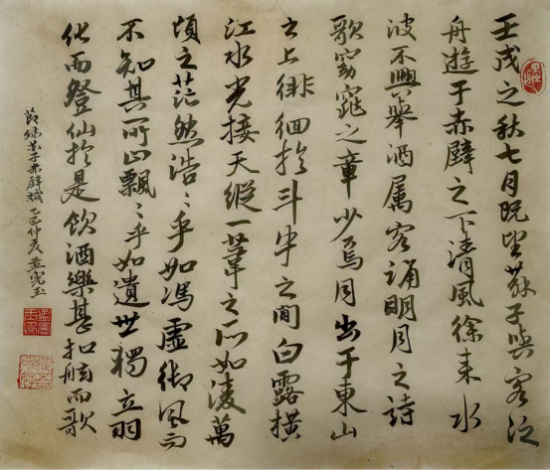 壬戌之秋七月既望蘇子與客泛
舟遊于赤壁之下清風徐来水
波不興舉酒属客誦明月之詩
歌窈窕之章少焉月出于東山
之上徘徊於斗牛之間白露橫
江水光接天縱一葦之所如凌萬
頃之茫然浩〻乎如馮虛御風而
不知其所止飄〻乎如遺世獨立羽
化而登仙於是飲酒樂甚扣舷而歌
節錄苏子赤壁賦乙巳仲夏